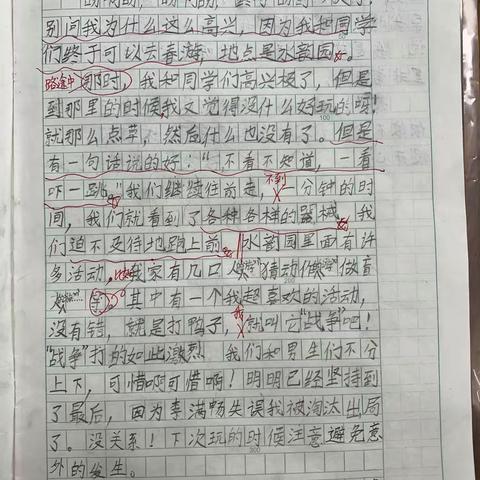 别问我为什么这么高兴，因为我和同学
们终于可以去春游，地点是水韵园。
路途中 那时，我和同学们高兴极了，但是
到那里的时候，我又觉得没什么好玩的呀！
就那么点草，然后什么也没有了。但是
有一句话说的好：“不看不知道，一看
吓一跳。”我们继续往前走，不到一分钟的时
间，我们就看到了各种各样的器械，我
们迫不及待地跑上前。水韵园里面有许
多活动，比如我家有几口人，猜动作，做音
等。其中有一个我超喜欢的活动，
没有错，就是打鸭子，我就叫它“战争”吧！
“战争”打的如此激烈 我们和男生们不分
上下，可惜啊可惜啊！明明已经坚持到
了最后，因为李满畅失误我被淘汰出局
了。没关系！下次玩的时候注意避免意
外的发生。
100
300